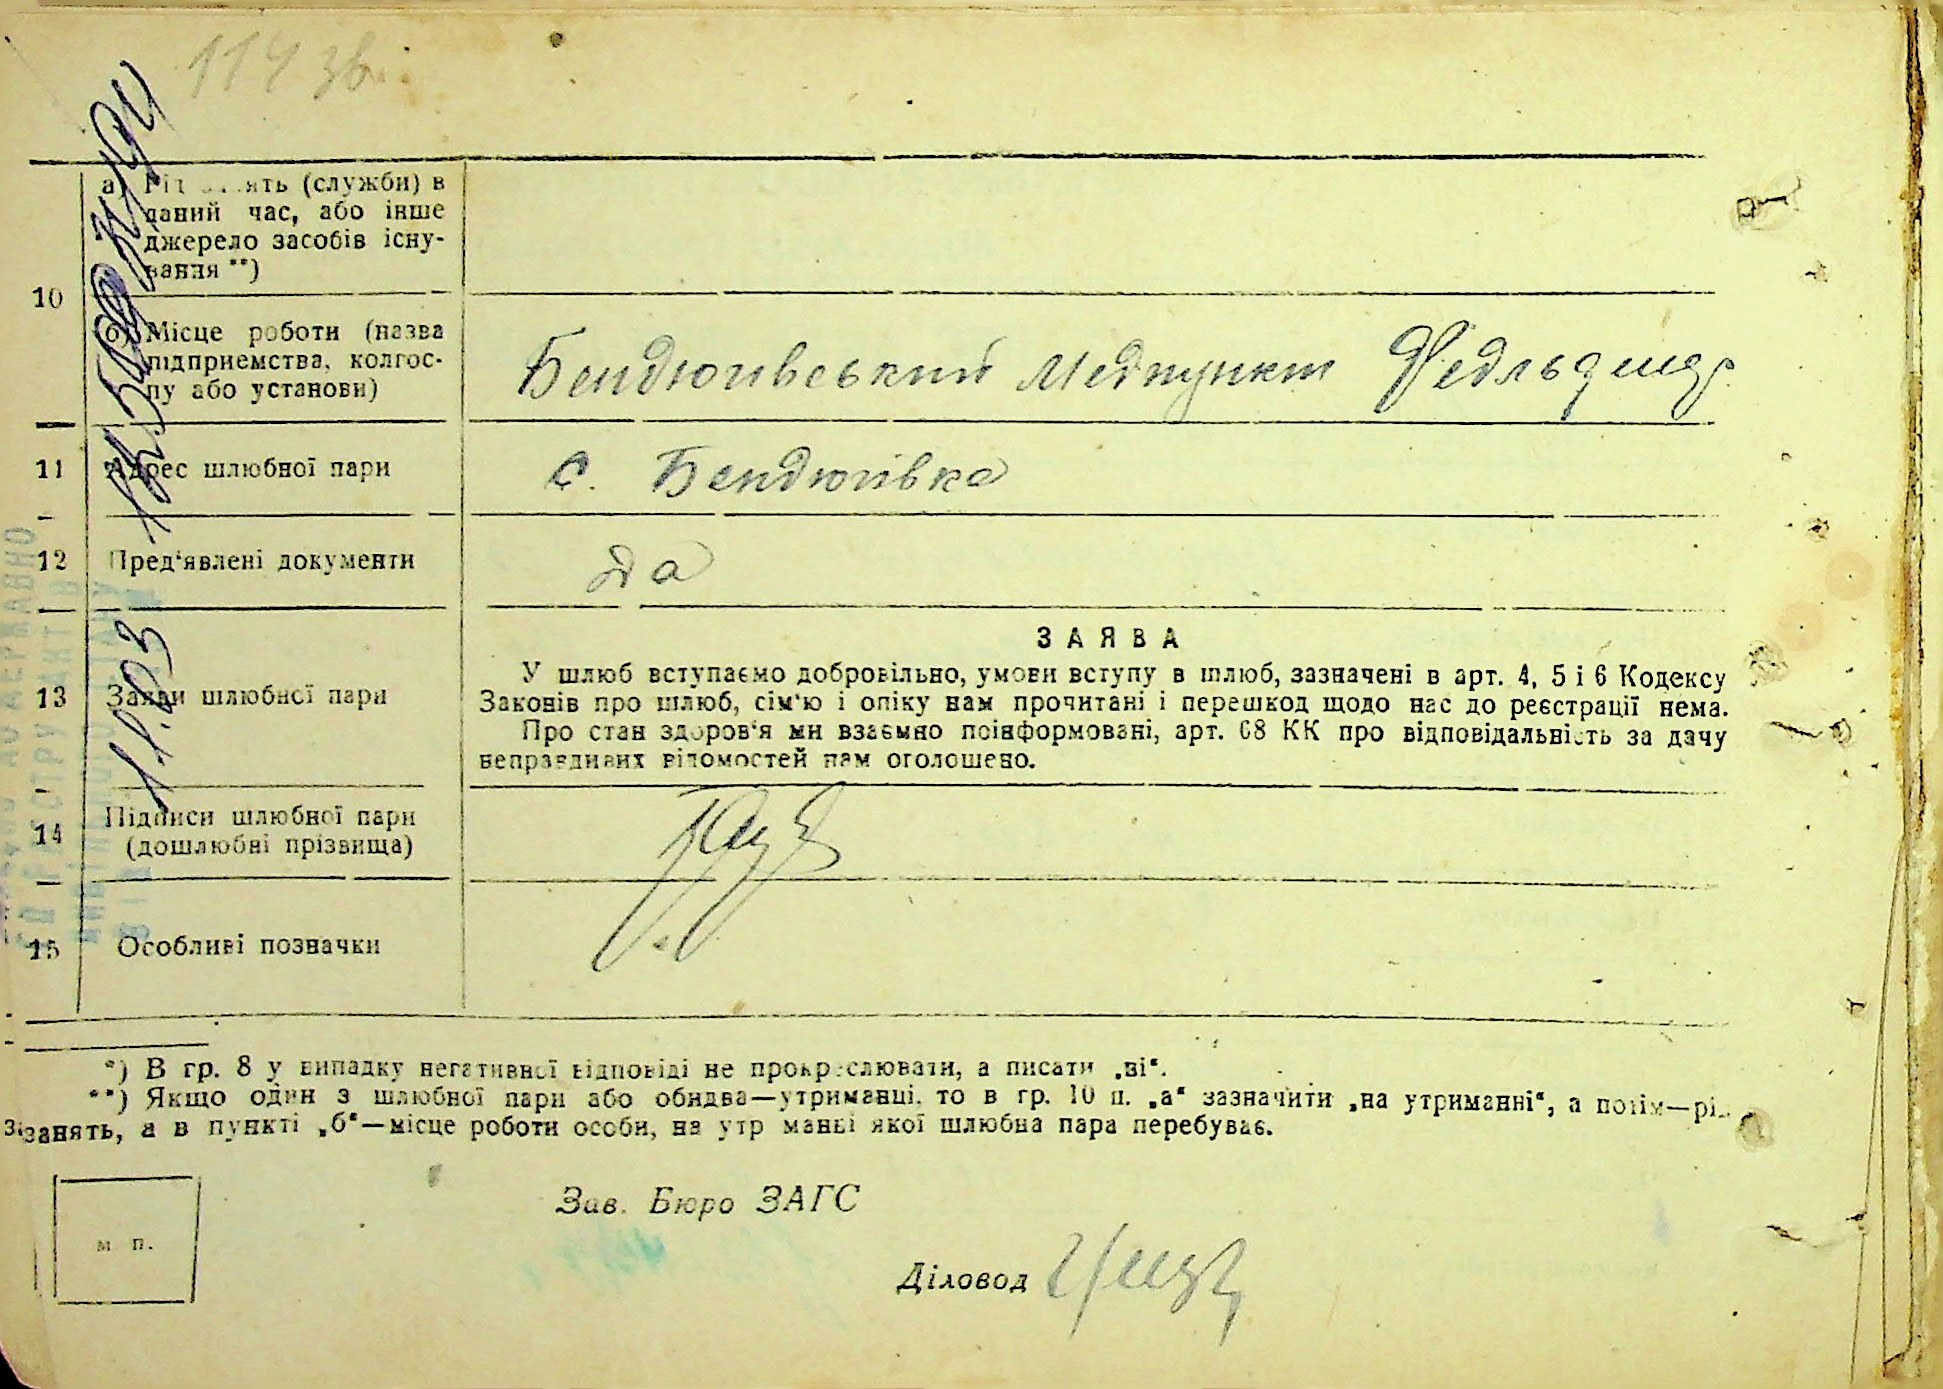 114 зв.
10
а) Рід занять (служби) в
даний час, або інше
джерело засобів існу-
вання **)
б) Місце роботи (назва
підприємства, колгос-
пу або установи)
Бендюгівський Медпункт Федльдшер
11 Адрес шлюбної пари
с. Бендюгівка
12 Пред'явлені документи
да
13 Заяви шлюбної пари
ЗАЯВА
У шлюб вступаємо добровільно, умови вступу в шлюб, зазначені в арт. 4, 5 і 6 Кодексу
Законів про шлюб, сім'ю і опіку нам прочитані і перешкод щодо нас до реєстрації нема.
Про стан здоров'я ми взаємно поінформовані, арт. 68 КК про відповідальність за дачу
неправдивих відомостей нам оголошено.
14 Підписи шлюбної пари
(дошлюбні прізвища)
15 Особливі позначки
*) В гр. 8 у випадку негативної відповіді не прокреслювати, а писати „ні“.
**) Якщо один з шлюбної пари або обидва—утриманці, то в гр. 10 п. „а“ зазначити „на утриманні“, а потім—рід
занять, а в пункті „б“—місце роботи особи, на утриманні якої шлюбна пара перебуває.
Зав. Бюро ЗАГС
м п.
Діловод